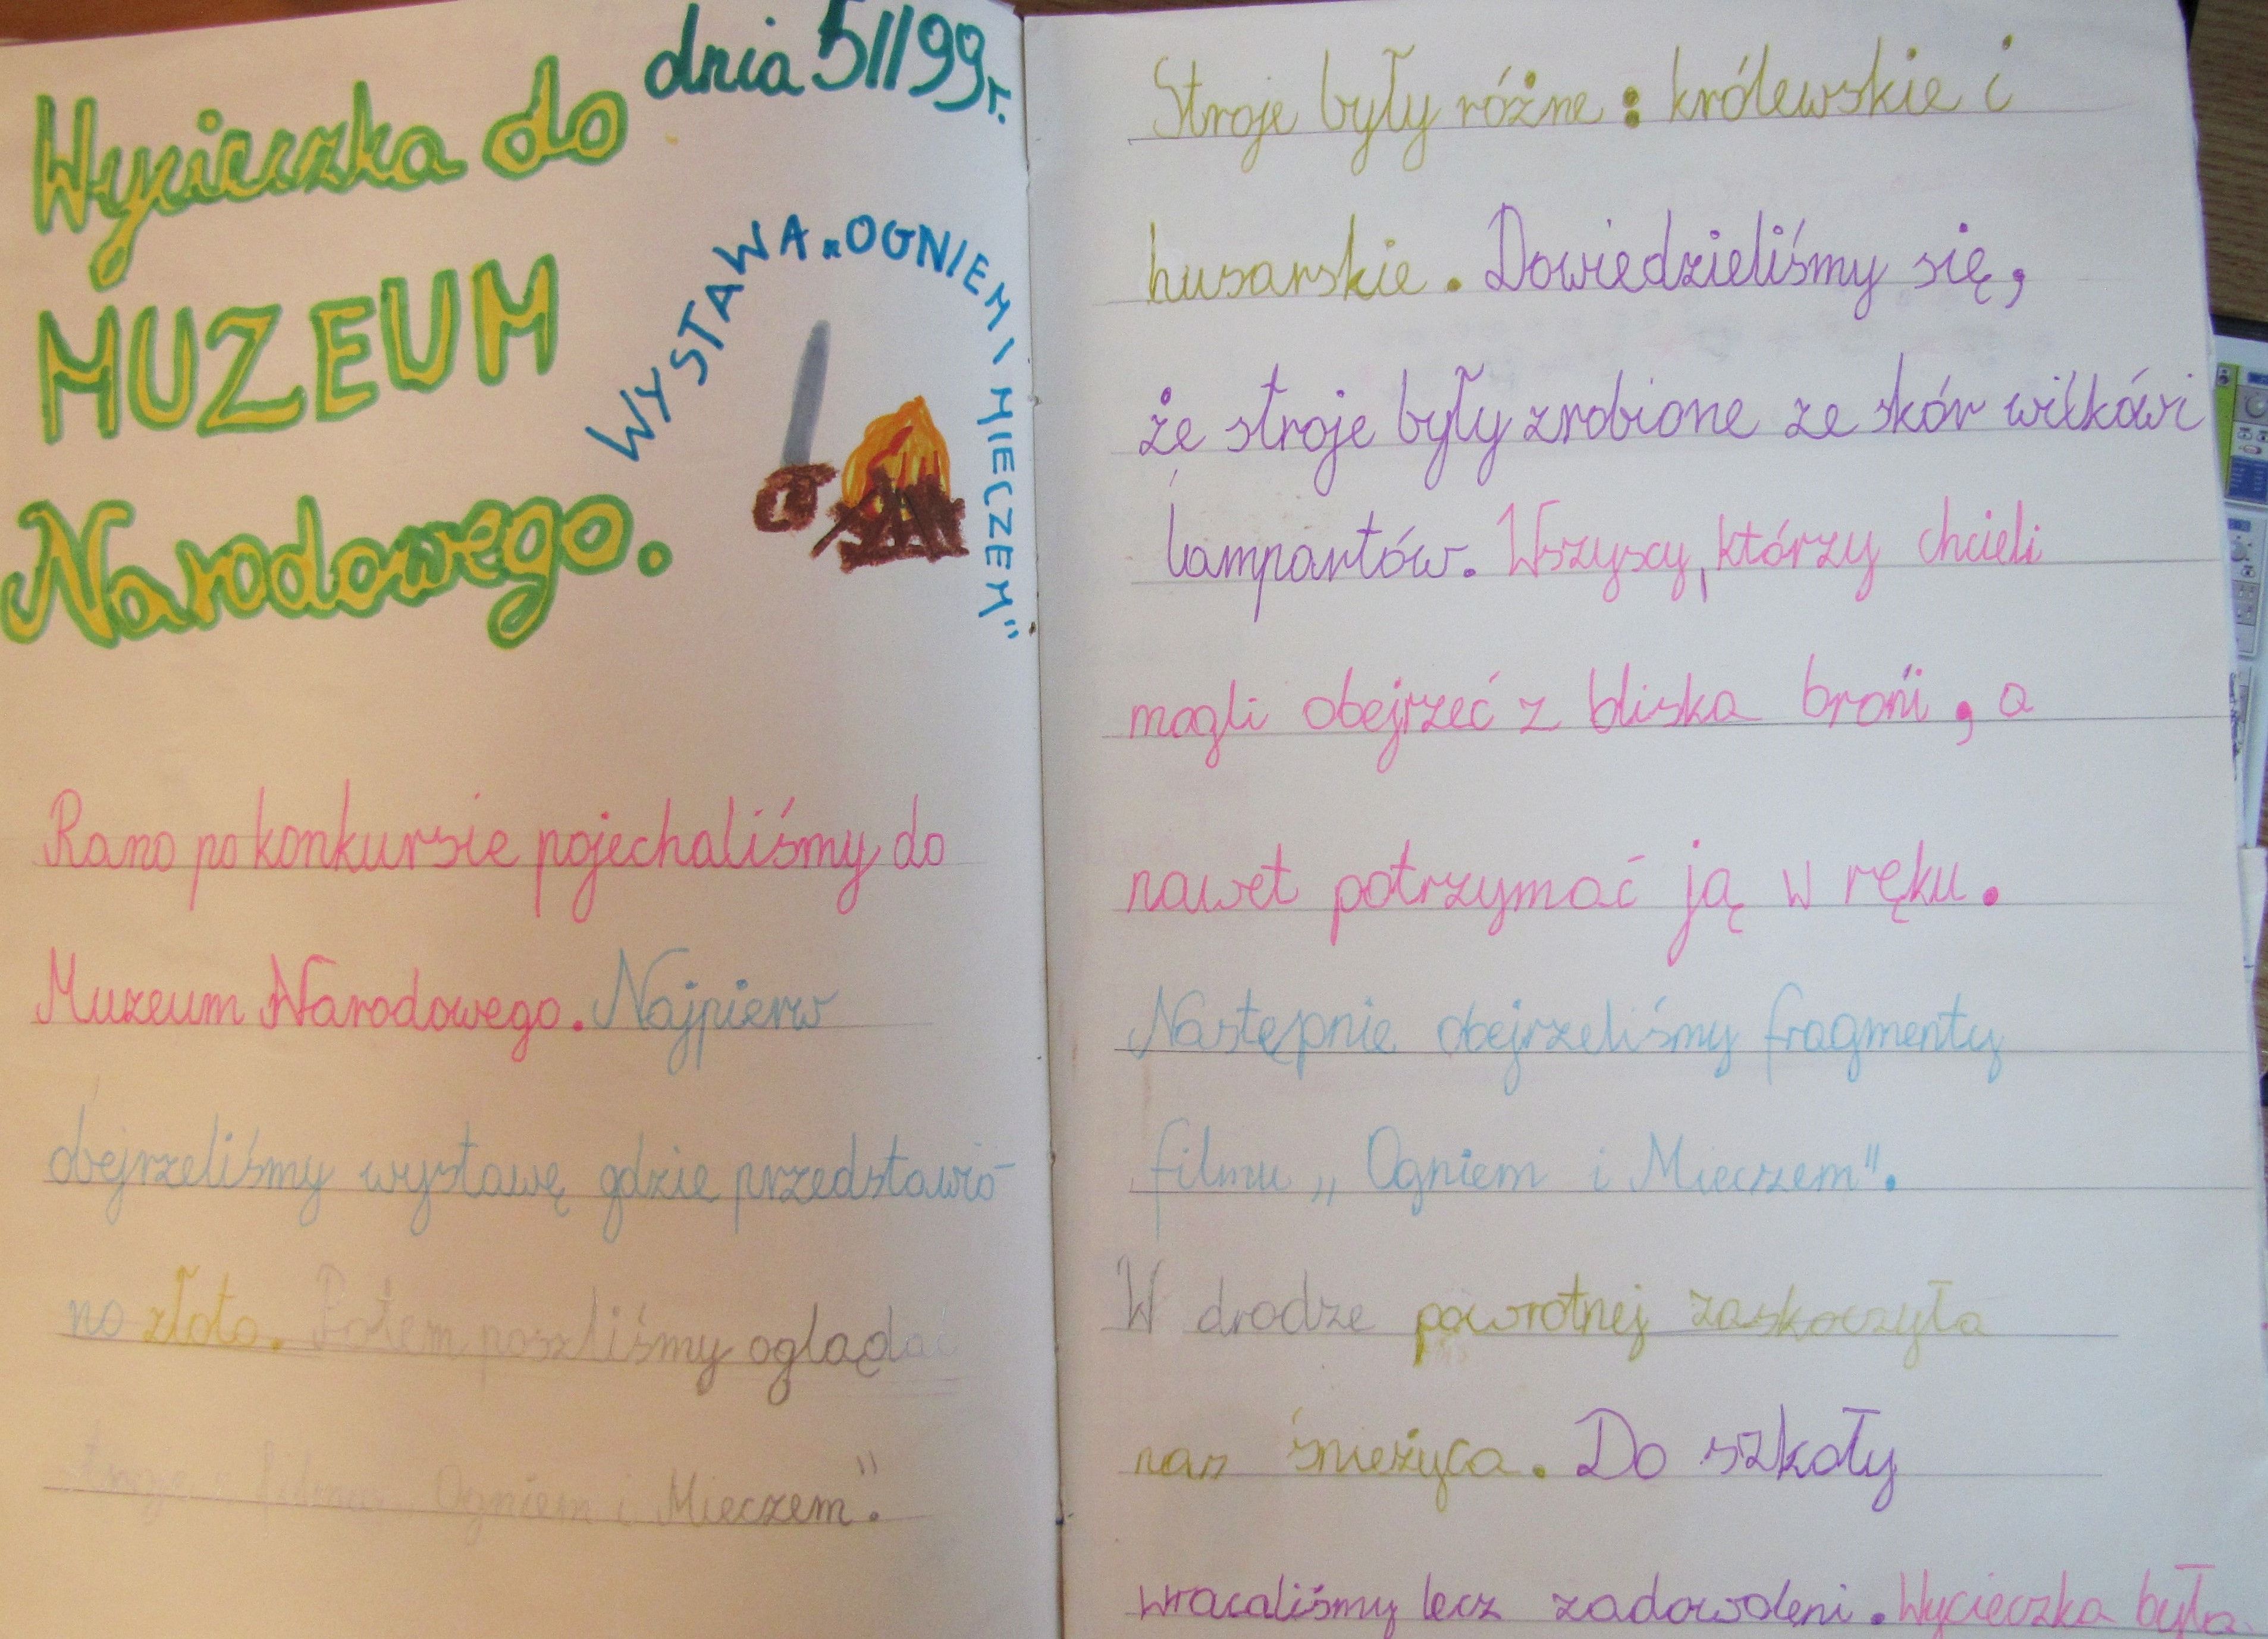 Wycieczka do
dnia 5 II 99 r.
MUZEUM
Narodowego.
WYSTAWA „OGNIEM I MIECZEM"
Rano po konkursie pojechaliśmy do
Muzeum Narodowego. Najpierw
obejrzeliśmy wystawę gdzie przedstawio-
no złoto. Potem poszliśmy oglądać
stroje z filmu „Ogniem i Mieczem".
Stroje były różne: królewskie i
husarskie. Dowiedzieliśmy się,
że stroje były zrobione ze skór wilków i
lampartów. Wszyscy, którzy chcieli
mogli obejrzeć z bliska broń, a
nawet potrzymać ją w ręku.
Następnie obejrzeliśmy fragmenty
filmu „Ogniem i Mieczem".
W drodze powrotnej zaskoczyła
nas śnieżyca. Do szkoły
wracaliśmy lecz zadowoleni. Wycieczka była